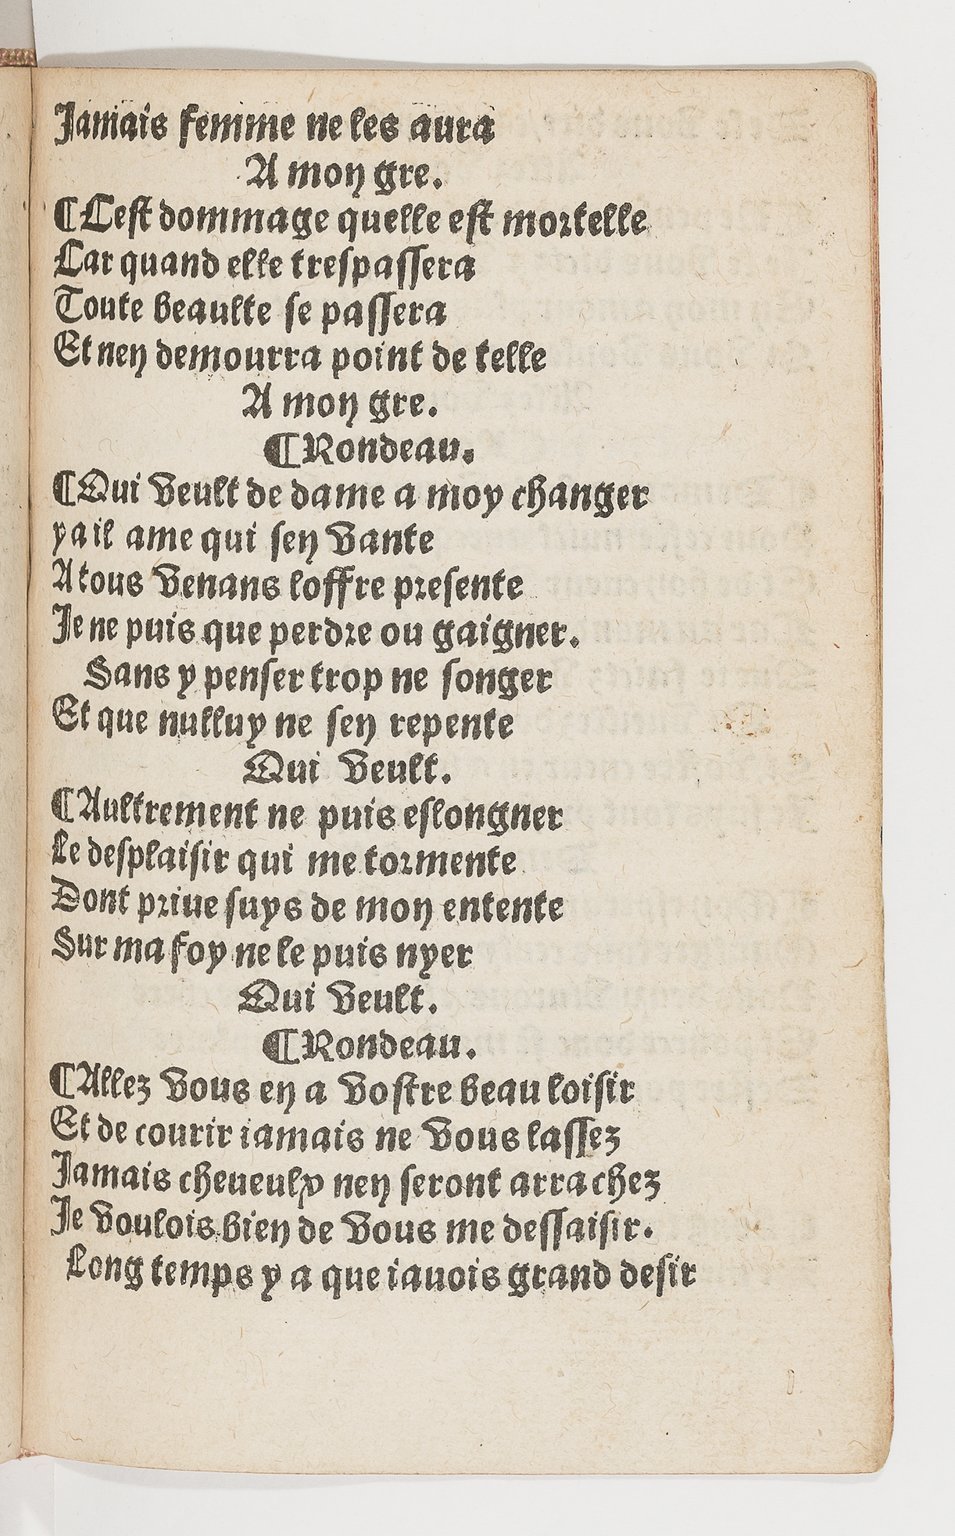 Jamais femme ne les aura
A mon gre.
¶Cest dommage quelle est mortelle
Car quand elle trespassera
Toute beaulte se passera
Et nen demourra point de telle
A mon gre.
¶Rondeau.
¶Qui veult de dame a moy changer
y a il ame qui sen vante
A tous venans loffre presente
Je ne puis que perdre ou gaigner.
Sans y penser trop ne songer
Et que nulluy ne sen repente
Qui veult.
¶Aultrement ne puis eslongner
Le desplaisir qui me tormente
Dont priue suys de mon entente
Sur ma foy ne le puis nyer
Qui veult.
¶Rondeau.
¶Allez vous en a vostre beau loisir
Et de courir iamais ne vous lassez
Jamais cheueulx nen seront arrachez
Je voulois bien de vous me dessaisir.
Long temps y a que iauois grand desir